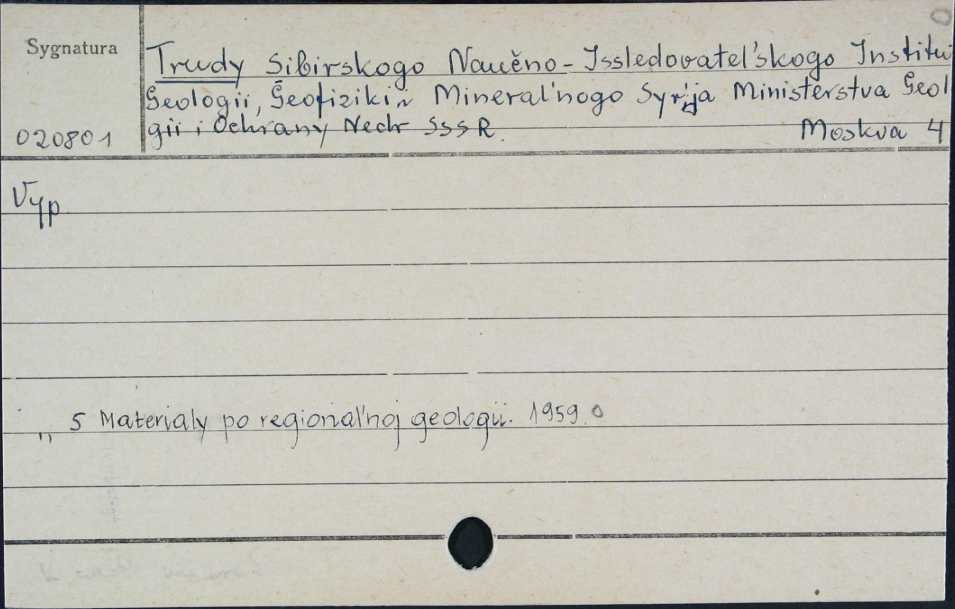 Sygnatura
020801
Trudy Sibirskogo Naučno-Issledovatel'skogo Institu
Geologii, Geofiziki i Mineral'nogo Syr'ja Ministerstva Geol
gii i Ochrany Nedr SSSR. Moskva 4
Vyp.
„ 5 Materialy po regional'noj geologii. 1959.